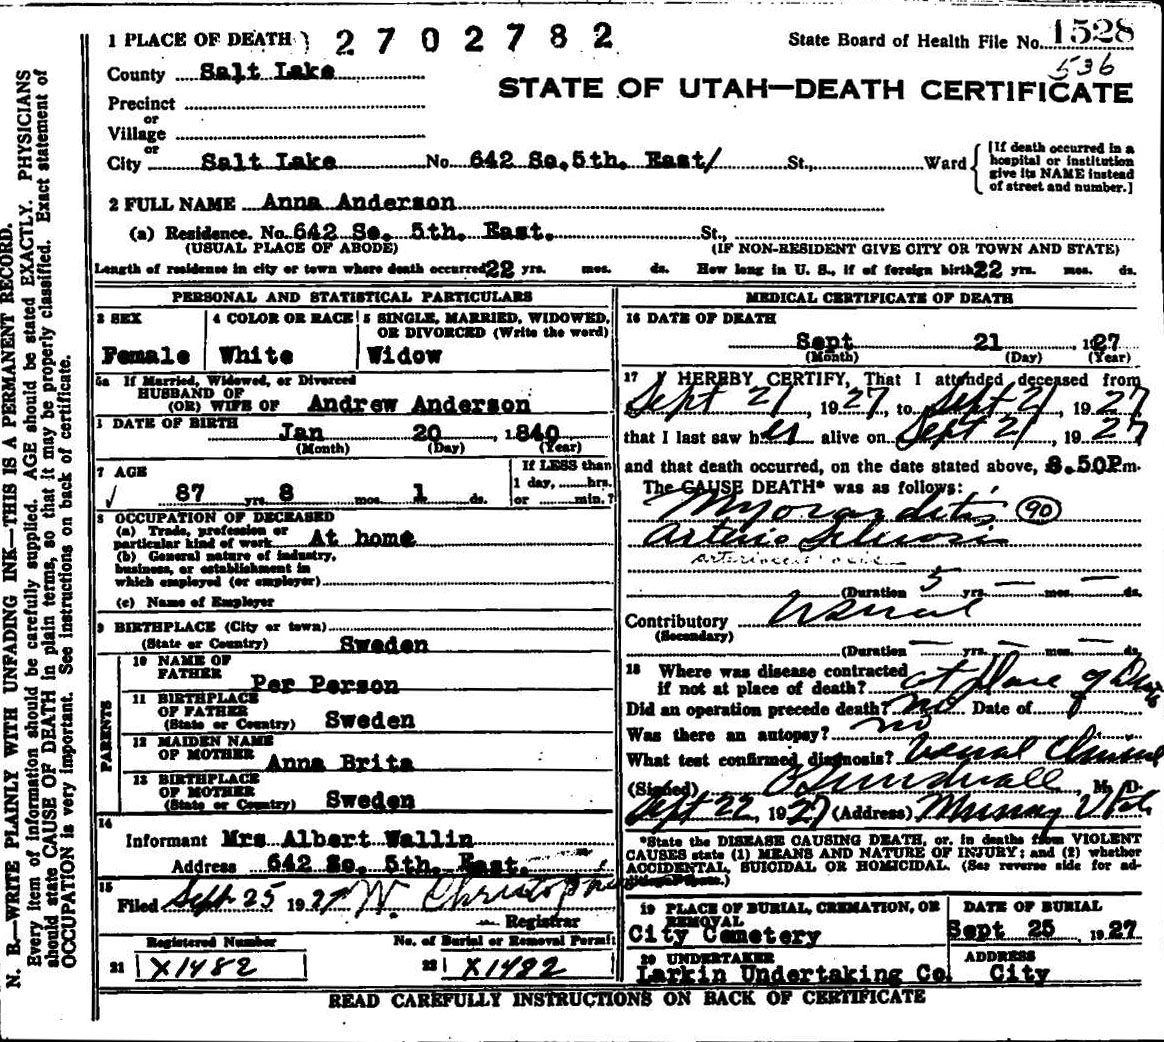 1 PLACE OF DEATH 2702782 State Board of Health File No. 1528
County Salt Lake 536
STATE OF UTAH—DEATH CERTIFICATE
Precinct
or
Village
or
City Salt Lake No. 642 So. 5th. East/ St., Ward
[If death occurred in a
hospital or institution
give its NAME instead
of street and number.]
2 FULL NAME Anna Anderson
(a) Residence. No. 642 So. 5th. East. St.,
(USUAL PLACE OF ABODE) (IF NON-RESIDENT GIVE CITY OR TOWN AND STATE)
Length of residence in city or town where death occurred 22 yrs. mos. ds. How long in U. S., if of foreign birth 22 yrs. mos. ds.
PERSONAL AND STATISTICAL PARTICULARS
3 SEX 4 COLOR OR RACE 5 SINGLE, MARRIED, WIDOWED,
OR DIVORCED (Write the word)
Female White Widow
5a If Married, Widowed, or Divorced
HUSBAND OF
(OR) WIFE OF Andrew Anderson
DATE OF BIRTH Jan 20, 1840
(Month) (Day) (Year)
7 AGE If LESS than
1 day, hrs.
87 yrs 8 mos. 1 ds. or min.?
8 OCCUPATION OF DECEASED
(a) Trade, profession or
particular kind of work At home
(b) General nature of industry,
business, or establishment in
which employed (or employer)
(c) Name of Employer
9 BIRTHPLACE (City or town)
(State or Country) Sweden
PARENTS
10 NAME OF
FATHER Per Person
11 BIRTHPLACE
OF FATHER
(State or Country) Sweden
12 MAIDEN NAME
OF MOTHER Anna Brita
13 BIRTHPLACE
OF MOTHER
(State or Country) Sweden
14
Informant Mrs Albert Wallin
Address 642 So. 5th. East.
15
Filed Sept 25 1927 W. Christoph
Registrar
Registered Number No. of Burial or Removal Permit
21 X1482 22 X1482
MEDICAL CERTIFICATE OF DEATH
16 DATE OF DEATH
Sept 21 1927
(Month) (Day) (Year)
17 I HEREBY CERTIFY, That I attended deceased from
Sept 21, 1927, to Sept 21, 1927
that I last saw her alive on Sept 21, 1927
and that death occurred, on the date stated above, 8.50P.m.
The CAUSE DEATH* was as follows:
Myocarditis 90
Arterio Sclerosis
(Duration 5 yrs. — mos. — ds.
Contributory
(Secondary)
(Duration — yrs. — mos. — ds.
18 Where was disease contracted
if not at place of death? at place of Death
Did an operation precede death? no Date of
Was there an autopsy? no
What test confirmed diagnosis? Usual Clinical
(Signed) M. D.
Sept 22, 1927 (Address) Murray Utah
*State the DISEASE CAUSING DEATH, or, in deaths from VIOLENT
CAUSES state (1) MEANS AND NATURE OF INJURY; and (2) whether
ACCIDENTAL, SUICIDAL OR HOMICIDAL. (See reverse side for ad-
19 PLACE OF BURIAL, CREMATION, OR REMOVAL DATE OF BURIAL
City Cemetery Sept 25, 1927
20 UNDERTAKER ADDRESS
Larkin Undertaking Co. City
READ CAREFULLY INSTRUCTIONS ON BACK OF CERTIFICATE
N. B.—WRITE PLAINLY WITH UNFADING INK—THIS IS A PERMANENT RECORD.
Every item of information should be carefully supplied. AGE should be stated EXACTLY. PHYSICIANS
should state CAUSE OF DEATH in plain terms, so that it may be properly classified. Exact statement of
OCCUPATION is very important. See instructions on back of certificate.